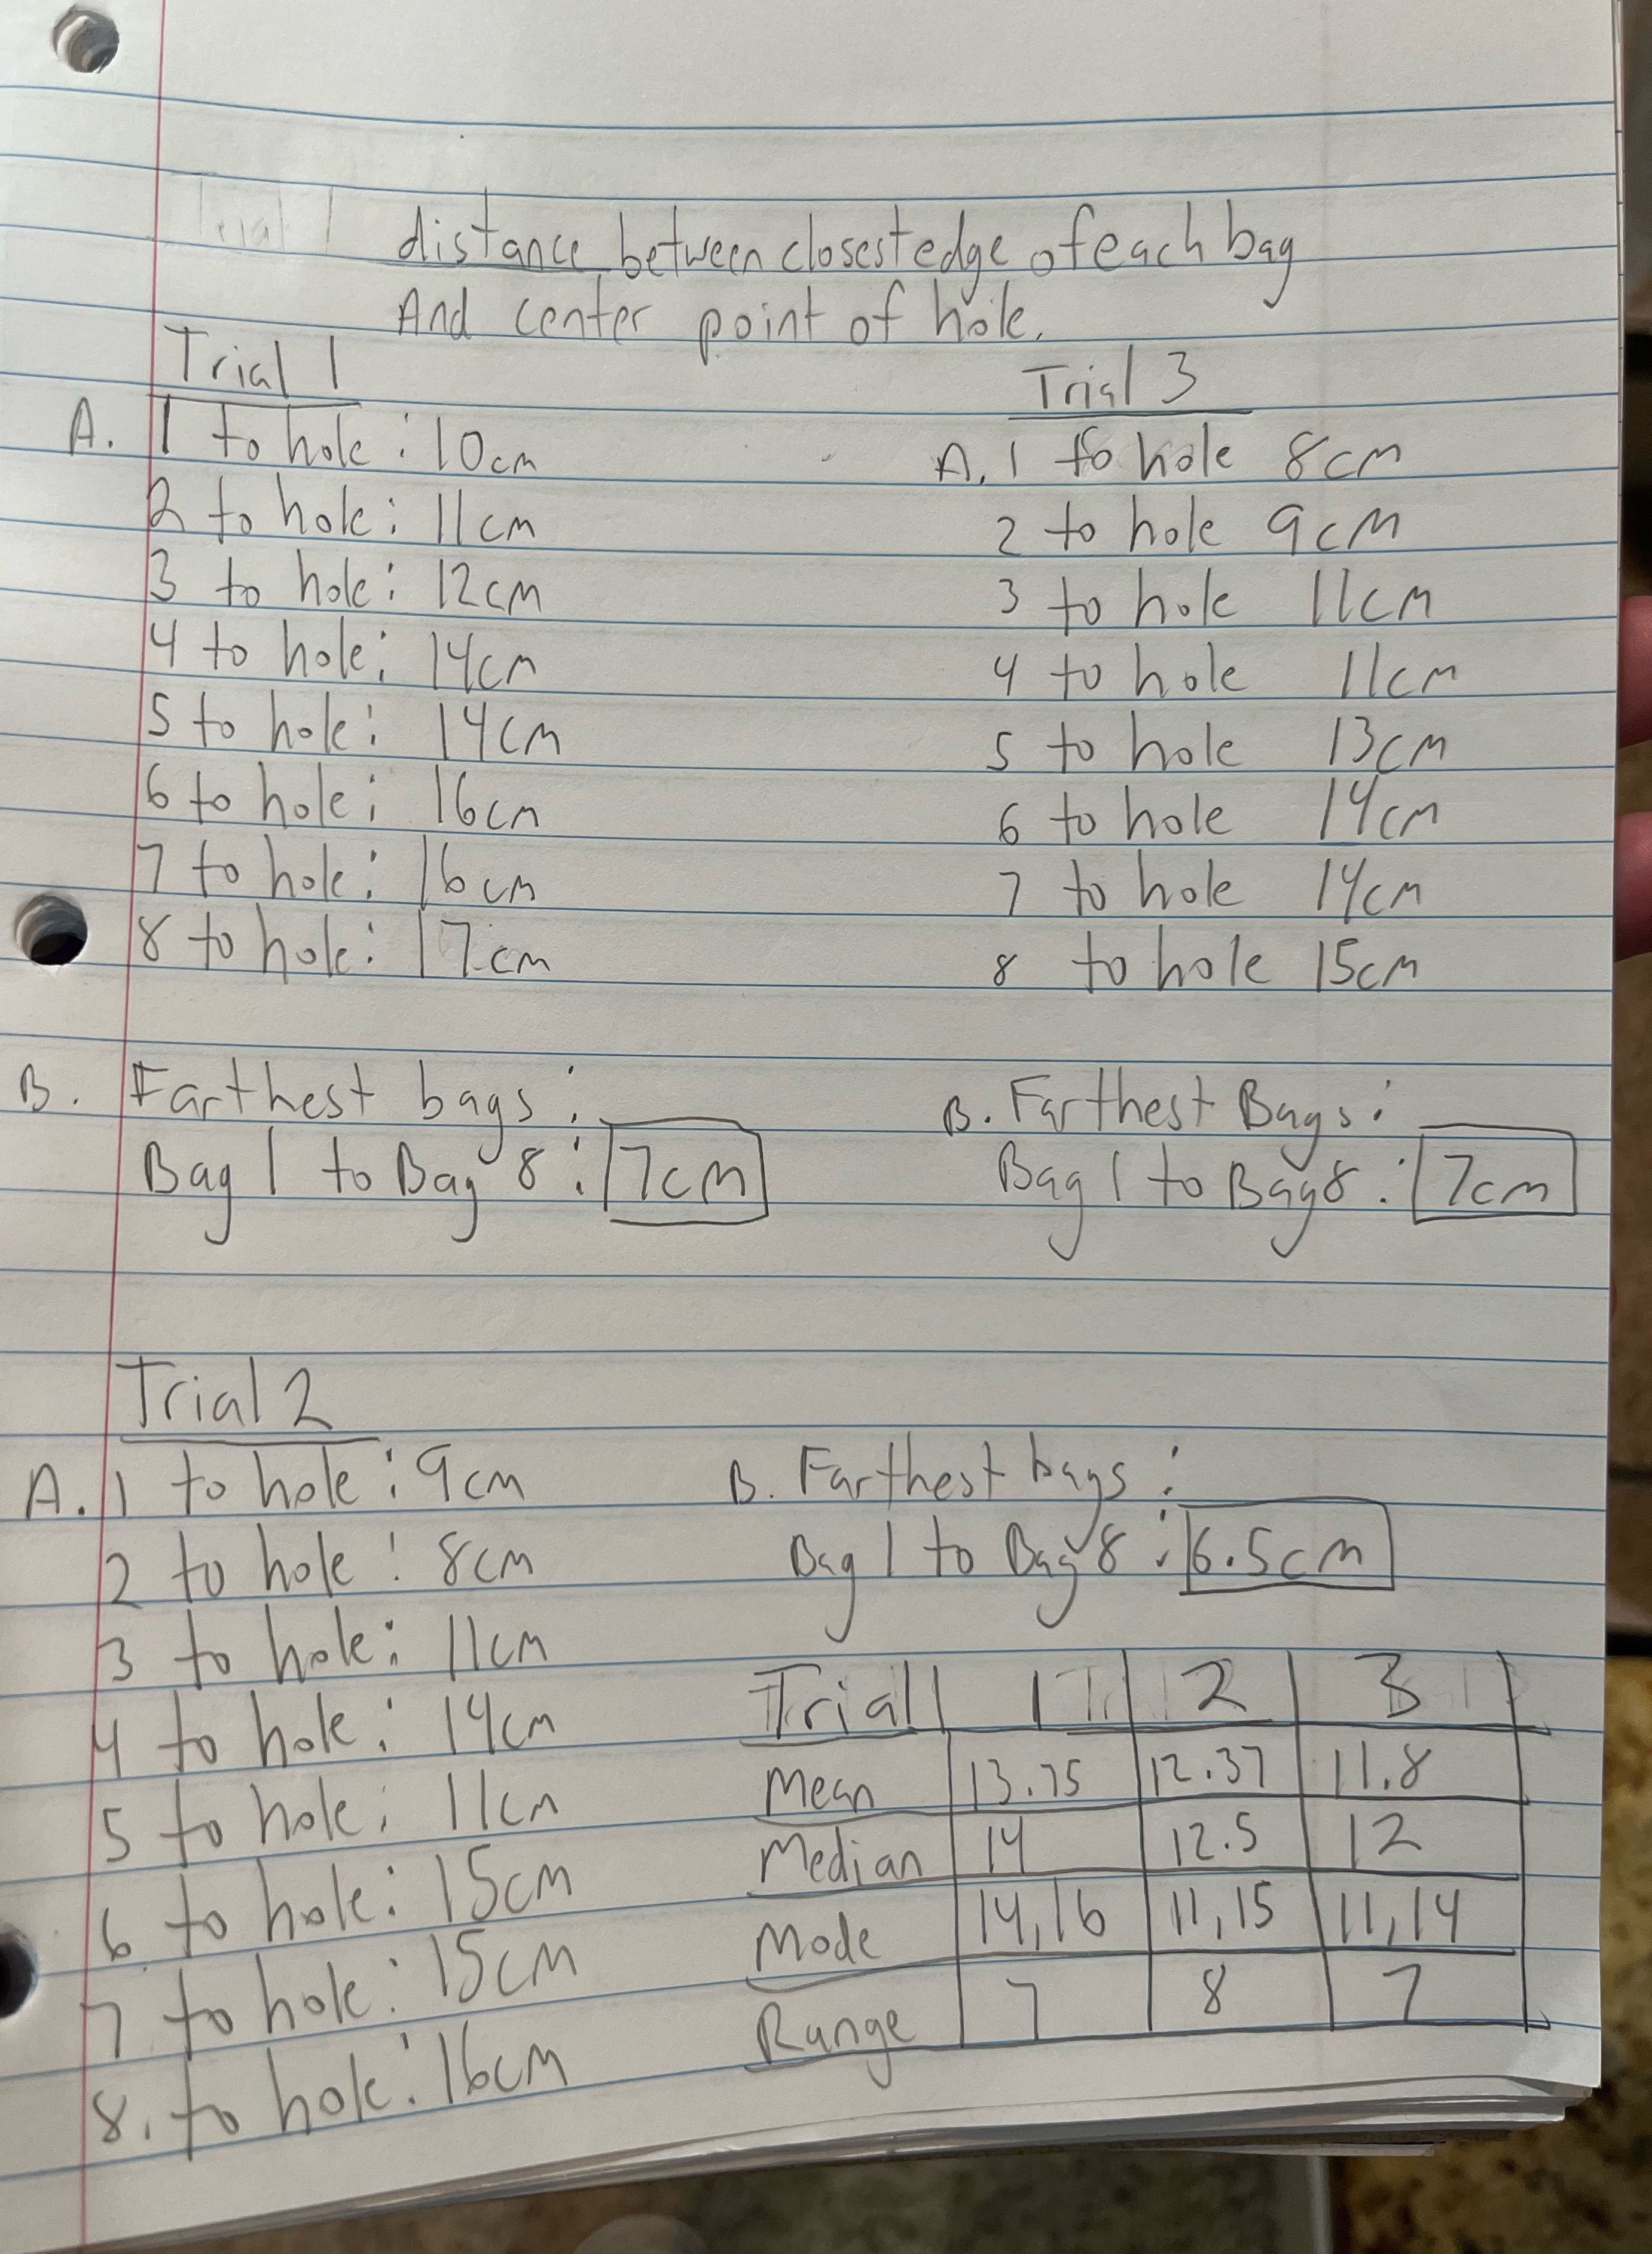 Trial 1
distance between closest edge of each bag
And center point of hole.
Trial 1
A. 1 to hole: 10cm
2 to hole: 11cm
3 to hole: 12cm
4 to hole: 14cm
5 to hole: 14cm
6 to hole: 16cm
7 to hole: 16cm
8 to hole: 17cm
B. Farthest bags:
Bag 1 to Bag 8: 7cm
Trial 3
A. 1 to hole 8cm
2 to hole 9cm
3 to hole 11cm
4 to hole 11cm
5 to hole 13cm
6 to hole 14cm
7 to hole 14cm
8 to hole 15cm
B. Farthest Bags:
Bag 1 to Bag 8: 7cm
Trial 2
A. 1 to hole: 9cm
2 to hole: 8cm
3 to hole: 11cm
4 to hole: 14cm
5 to hole: 11cm
6 to hole: 15cm
7 to hole: 15cm
8. to hole: 16cm
B. Farthest bags:
Bag 1 to Bag 8: 6.5cm
Trial 1 2 3
Mean 13.75 12.37 11.8
Median 14 12.5 12
Mode 14,16 11,15 11,14
Range 7 8 7